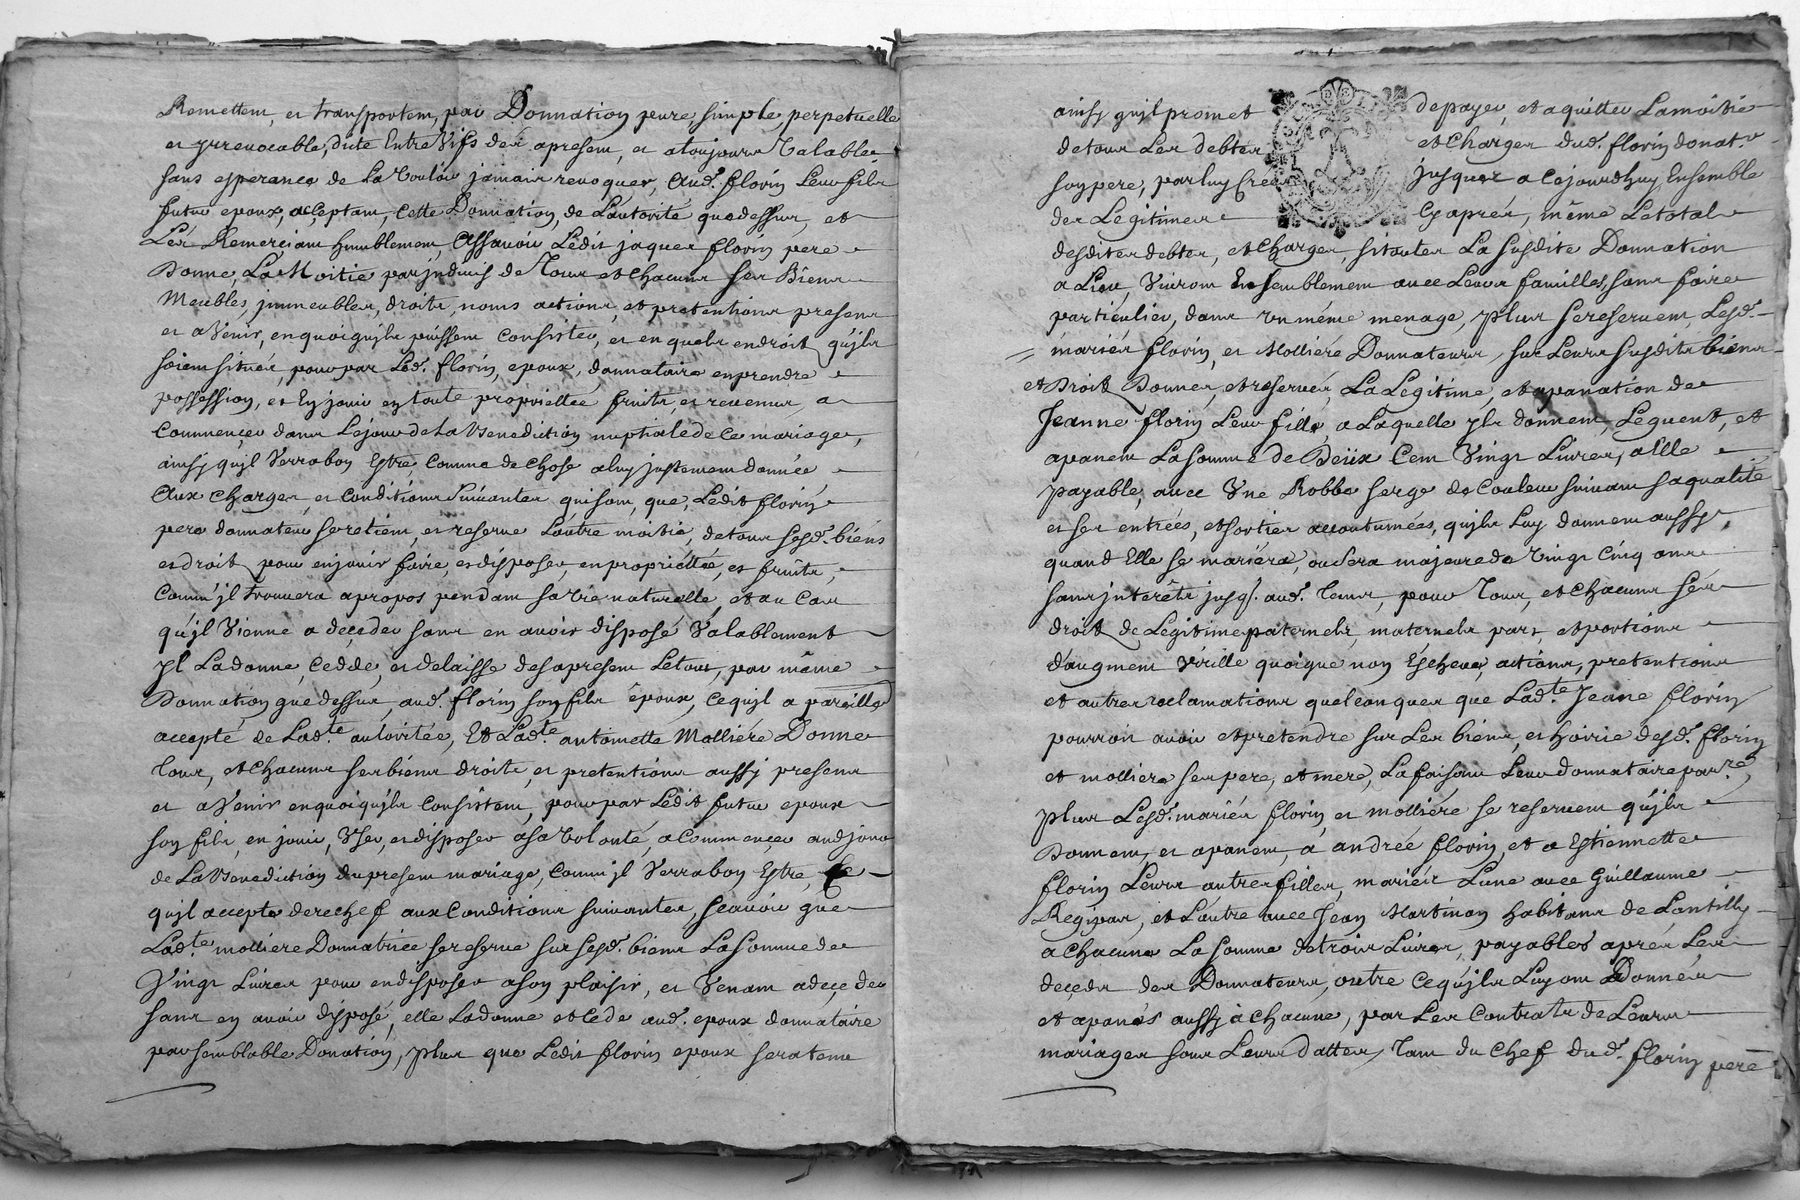 Remettent, et transportent, par Donnation pure, simple, perpetuelle
et yrrevocable, dicte Entre Vifs des apresent, et atoujours Valable
sans esperance de La Vouloir jamais revoquer, Aud. florin Leur fils
futur epoux, acceptant, Cette Donnation, de Lautorité quedessus, et
Les Remerciant humblement, Assavoir Ledit jaques florin pere
Donne, La Moitié parjndivis de Tous et chacuns ses Biens
Meubles, jmmeubles, droits, noms actions, et pretentions presens
et aVenir, enquoiquils puissent Consister, et en quels endroit quils
soient situés, pour par Led. florin, epoux, donnataire enprendre
possession, et En jouir en toute propriettée fruits, et revenus, a
Commencer dans Lejour de La Benediction nuptiale de Ce mariage,
ainsy quil Verra bon Estre, Comme de Chose aluy justement donnée
Aux Charges, et Conditions Suivantes, quisont, que, Ledit florin
pere donnateur seretient, et reserve Lautre moitié, detous sesd. biens
et droit pour enjouir faire, et disposer, enpropriettée, et fruits,
Comm'jl trouvera apropos pendant sa vie naturelle, et au Cas
qu'jl Vienne a deceder sans en avoir disposé Valablement
yl Ladonne, Cedde, et delaisse desapresent Letout, par même
Donnation que dessus, aud. florin son fils époux, Cequjl a pareillt
accepté de Ladte autoritée, Et Ladte antoinette Molliére Donne
tous, et Chacuns ses biens droits, et pretentions aussy presens
et aVenir enquoiquils Consistent, pour par Ledit futur epoux
son fils, en jouir, User, et disposer asa Volonté, a Commencer aud jour
de La Benediction du present mariage, Comm'jl Verrabon Estre, Ce
qujl accepte derechef aux Conditions suivantes, scavoir que
Ladte molliere Donnatrice se reserve sur sesd. biens La somme de
Vingt Livres pour endisposer ason plaisir, et Venant a deceder
sans en avoir disposé, elle Ladonne et Cede aud. epoux donnataire
par semblable Donation, plus que Ledit florin epoux sera tenu
ainsy quil promet depayer, et aquitter Lamoitié
detous Les debtes et Charges dud. florin donatr
son pere, parluy Créés jusques a Cejourdhuy Ensemble
des Legitimes Cyaprés, même Letotal
desdites debtes, et Charges, sitoutes La susdite Donnation
a Lieu, Vivront Ensemblement avec Leurs familles, sans faire
particulier, dans un même menage, plus sereservent, Lesd.
mariés florin, et Molliére Donnateurs, sur Leurs susdits biens
et Droit Donner, et reserver, La Legitime, et apanation de
Jeanne florin Leur fille, a Laquelle yls donnent, Leguent, et
apanent La Somme de Deüx Cent Vingt Livres, a Elle
payable, avec Une Robbe serge de Couleur suivant saqualité
et ses entrées, et sorties accoutumées, quils Luy donnent aussy,
quand Elle se mariéra, ou sera majeure de Vingt Cinq ans
sans jnterêts jusq. aud. tems, pour Tous, et Chacuns ses
droit de Legitime paternels, maternels part, et portions
daugment Virille quoique non Escheus, actions, pretentions
et autres reclamations quelconques que Ladte Jeane florin
pourroit avoir et pretendre sur Les biens, et hoirie desd. florin
et molliere ses pere, et mere, La faisant Leur donnataire parres,
plus Lesd. mariés florin, et molliére se reservent qu'jls
Donnent, et apanent, a andrée florin, et a Estiennette
florin Leurs autres filles, mariéés Lune avec Guillaume
Regipas, et Lautre avec Jean Martinon habitans de Lantilly
a Chacune La somme detrois Livres, payables aprés Les
decéds des Donnateurs, outre Ce qu'jls Luy ont Donnés
et apanés aussy à Chacune, par Les Contrats de Leurs
mariages sous Leurs dattes, tant du Chef dud. florin pere